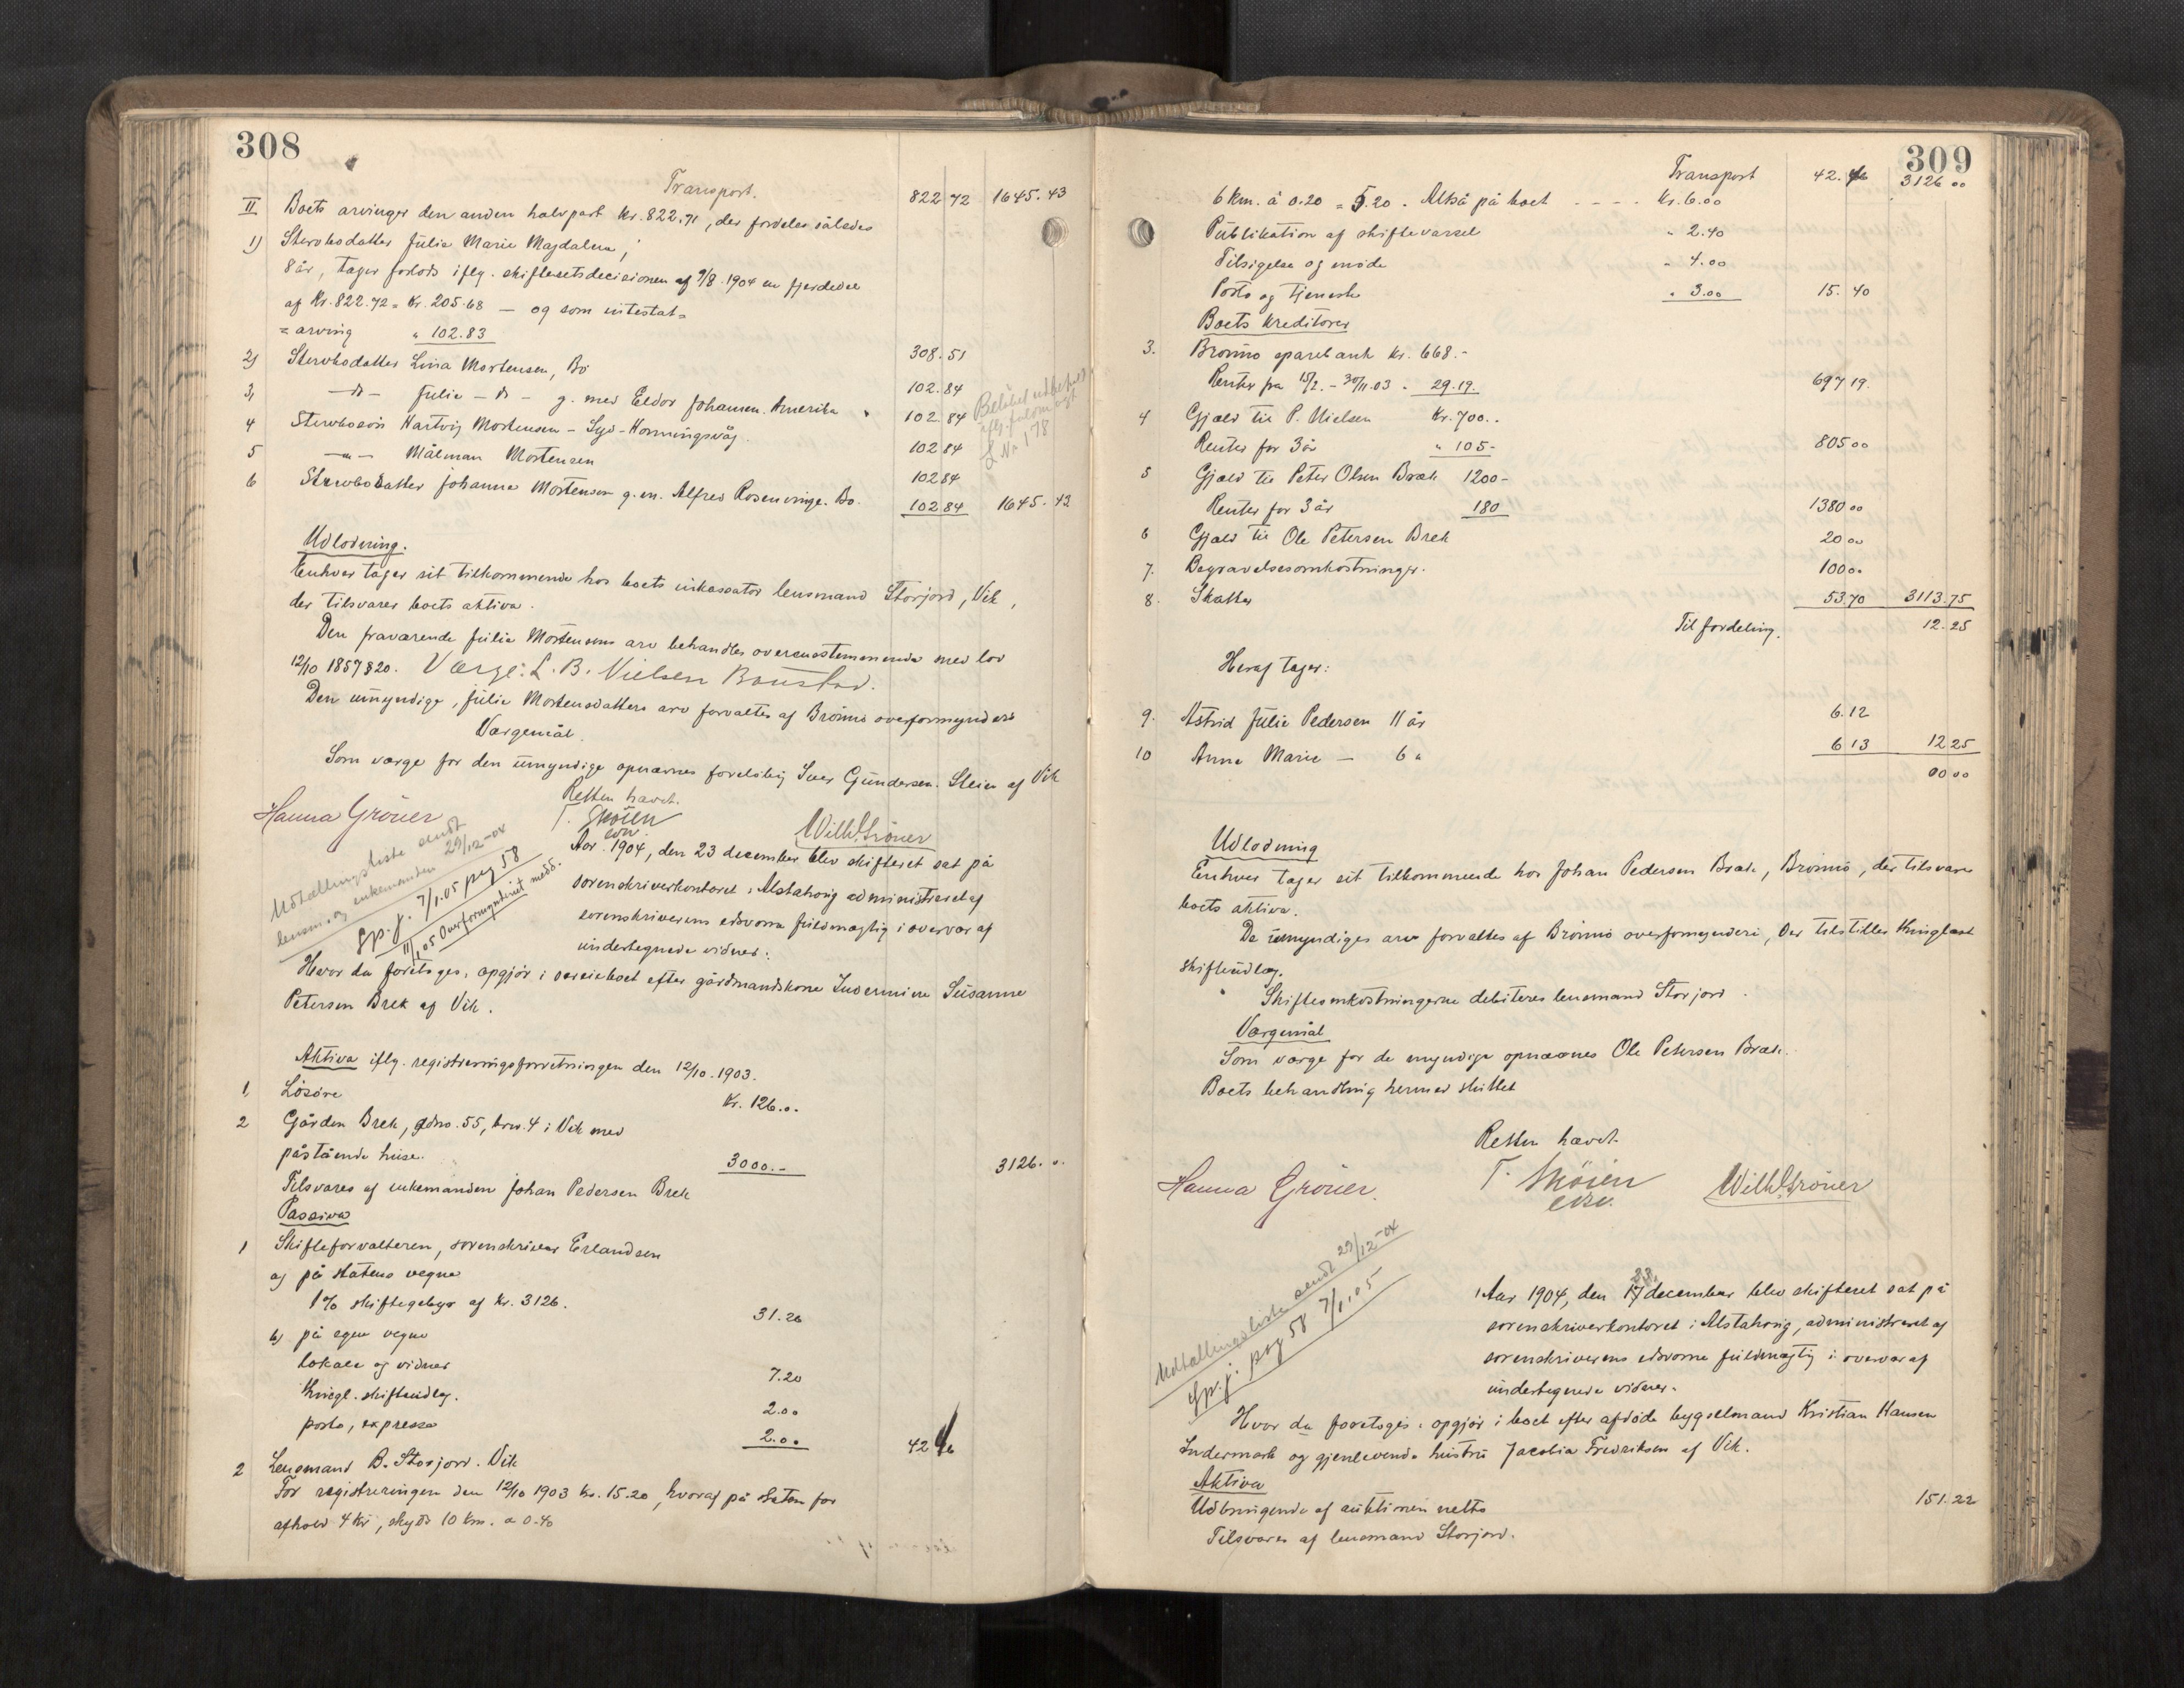 308
Transport. 822 72 1645.43
II Boets arvinger den anden halvpart kr. 822.71, der fordeles således
1) Stervbodatter Julie Marie Magdalena,
8 år, tager forlods iflg. skifteretsdecisionen af 9/8 1904 en fjerdedel
af kr. 822.72 = kr. 205.68 – og som intestat=
= arving " 102.83 308.51
2) Stervbodatter Lina Mortensen, Bø 102.84
3, –"– Julie –"– g. med Eldor Johansen. Amerika 102 84
4 Stervbosøn Hartvig Mortensen – Honningsvåg 102 84
5 –"– Målman Mortensen 102 84
6 Stervbodatter Johanna Mortensen g. m. Alfred Rosenvinge. Bø. 102 84 1645.43
Beløbet udbetalt
L No 178
Udlodning.
Enhver tager sit tilkommende hos boets inkassator lensmand Storjord, Vik,
der tilsvarer boets aktiva.
Den fraværende Julie Mortensens arv behandles overensstemmende med lov
12/10 1857 § 20. Værge: L. B. Nielsen Bonstad.
Den umyndige, Julie Mortensdatters arv forvaltes af Brønnø overformynderi
Værgemål.
Som værge for den umyndige opnævnes foreløbig Iver Gundersen. Stein af Vik
Retten hævet.
Hanna Grøner T. Skøien Wilh. Grøner
edsv.
Udtællingsliste sendt
lensm. og enkemanden 29/12–04
Sp. j. 7/1.05 pag 58
11/1 05 Overformynderiet medd.
Aar 1904, den 23 december blev skifteret sat på
sorenskriverkontoret i Alstahoug administreret af
sorenskriverens edsvorne fuldmægtig i overvær af
undertegnede vidner:
Hvor da foretoges: opgjør i særeieboet efter gårdmandskone Ingermine Susanne
Petersen Brek af Vik.
Aktiva iflg. registreringsforretningen den 12/10. 1903.
1, Løsøre Kr. 126.0.
2 Gården Brek, gdno. 55, brn. 4 i Vik med
påstående huse. 3000.– 3126.0.
Tilsvares af enkemanden Johan Pedersen Brek
Passiva
1 Skifteforvalteren, sorenskriver Erlandsen
a) på statens vegne
1% skiftegebyr af kr. 3126. 31.26
b) på egne vegne
lokale og vidner 7.20
Kringl. skifteudlæg. 2.00
porto, expresse 2.00 42 46
2 Lensmand B. Storjord. Vik
For registreringen den 12/10 1903 kr. 15.20, hvoraf på staten for
afhold 4 kr, skyds 10 km. a 0.40
309
Transport 42.46 3126 00
6 km. à 0.20 = 5.20. Altså på boet – – – – kr. 6.00
Publikation af skiftevarsel " 2.40
Tilsigelse og møde " 4.00
Porto og tjeneste " 3.00 15.40
Boets kreditorer
3. Brønnø sparebank kr. 668.–
Renter fra 15/2. – 30/11.03 " 29.19. 697 19
4 Gjæld til P. Nielsen Kr. 700..
Renter for 3 år " 105– 805 00
5 Gjæld til Peter Olsen Bræk 1200–
Renter for 3 år 180 1380 00
6 Gjæld til Ole Petersen Brek 20 00
7. Begravelsesomkostninger. 100 00
8. Skatter 53.70 3113.75
Til fordeling. 12.25
Heraf tager:
9. Astrid Julie Pedersen 11 år 6.12
10 Anna Marie — 6 " 6 13 12 25
00 00
Udlodning
Enhver tager sit tilkommende hos Johan Pedersen Bræk, Brønnø, der tilsvarer
boets aktiva.
De umyndiges arv forvaltes af Brønnø overformynderi, der tilstilles kringlæst
skifteudlæg.
Skifteomkostningerne debiteres lensmand Storjord.
Værgemål
Som værge for de umyndige opnævnes Ole Petersen Bræk.
Boets behandling hermed sluttet
Retten hævet.
Hanna Grøner. T. Skøien Wilh. Grøner
edsv.
Udtællingsliste sendt 29/12–04
Sp. j. pag 58 7/1.05
Aar 1904, den 28 december blev skifteret sat på
sorenskriverkontoret i Alstahoug, administreret af
sorenskriverens edsvorne fuldmægtig i overvær af
undertegnede vidner.
Hvor da foretoges: opgjør i boet efter afdøde bygselmand Kristian Hansen
Indermark og gjenlevende hustru Jacobia Fredriksen af Vik.
Aktiva
Udbringende af auktionen netto 151.22
Tilsvares af lensmand Storjord.